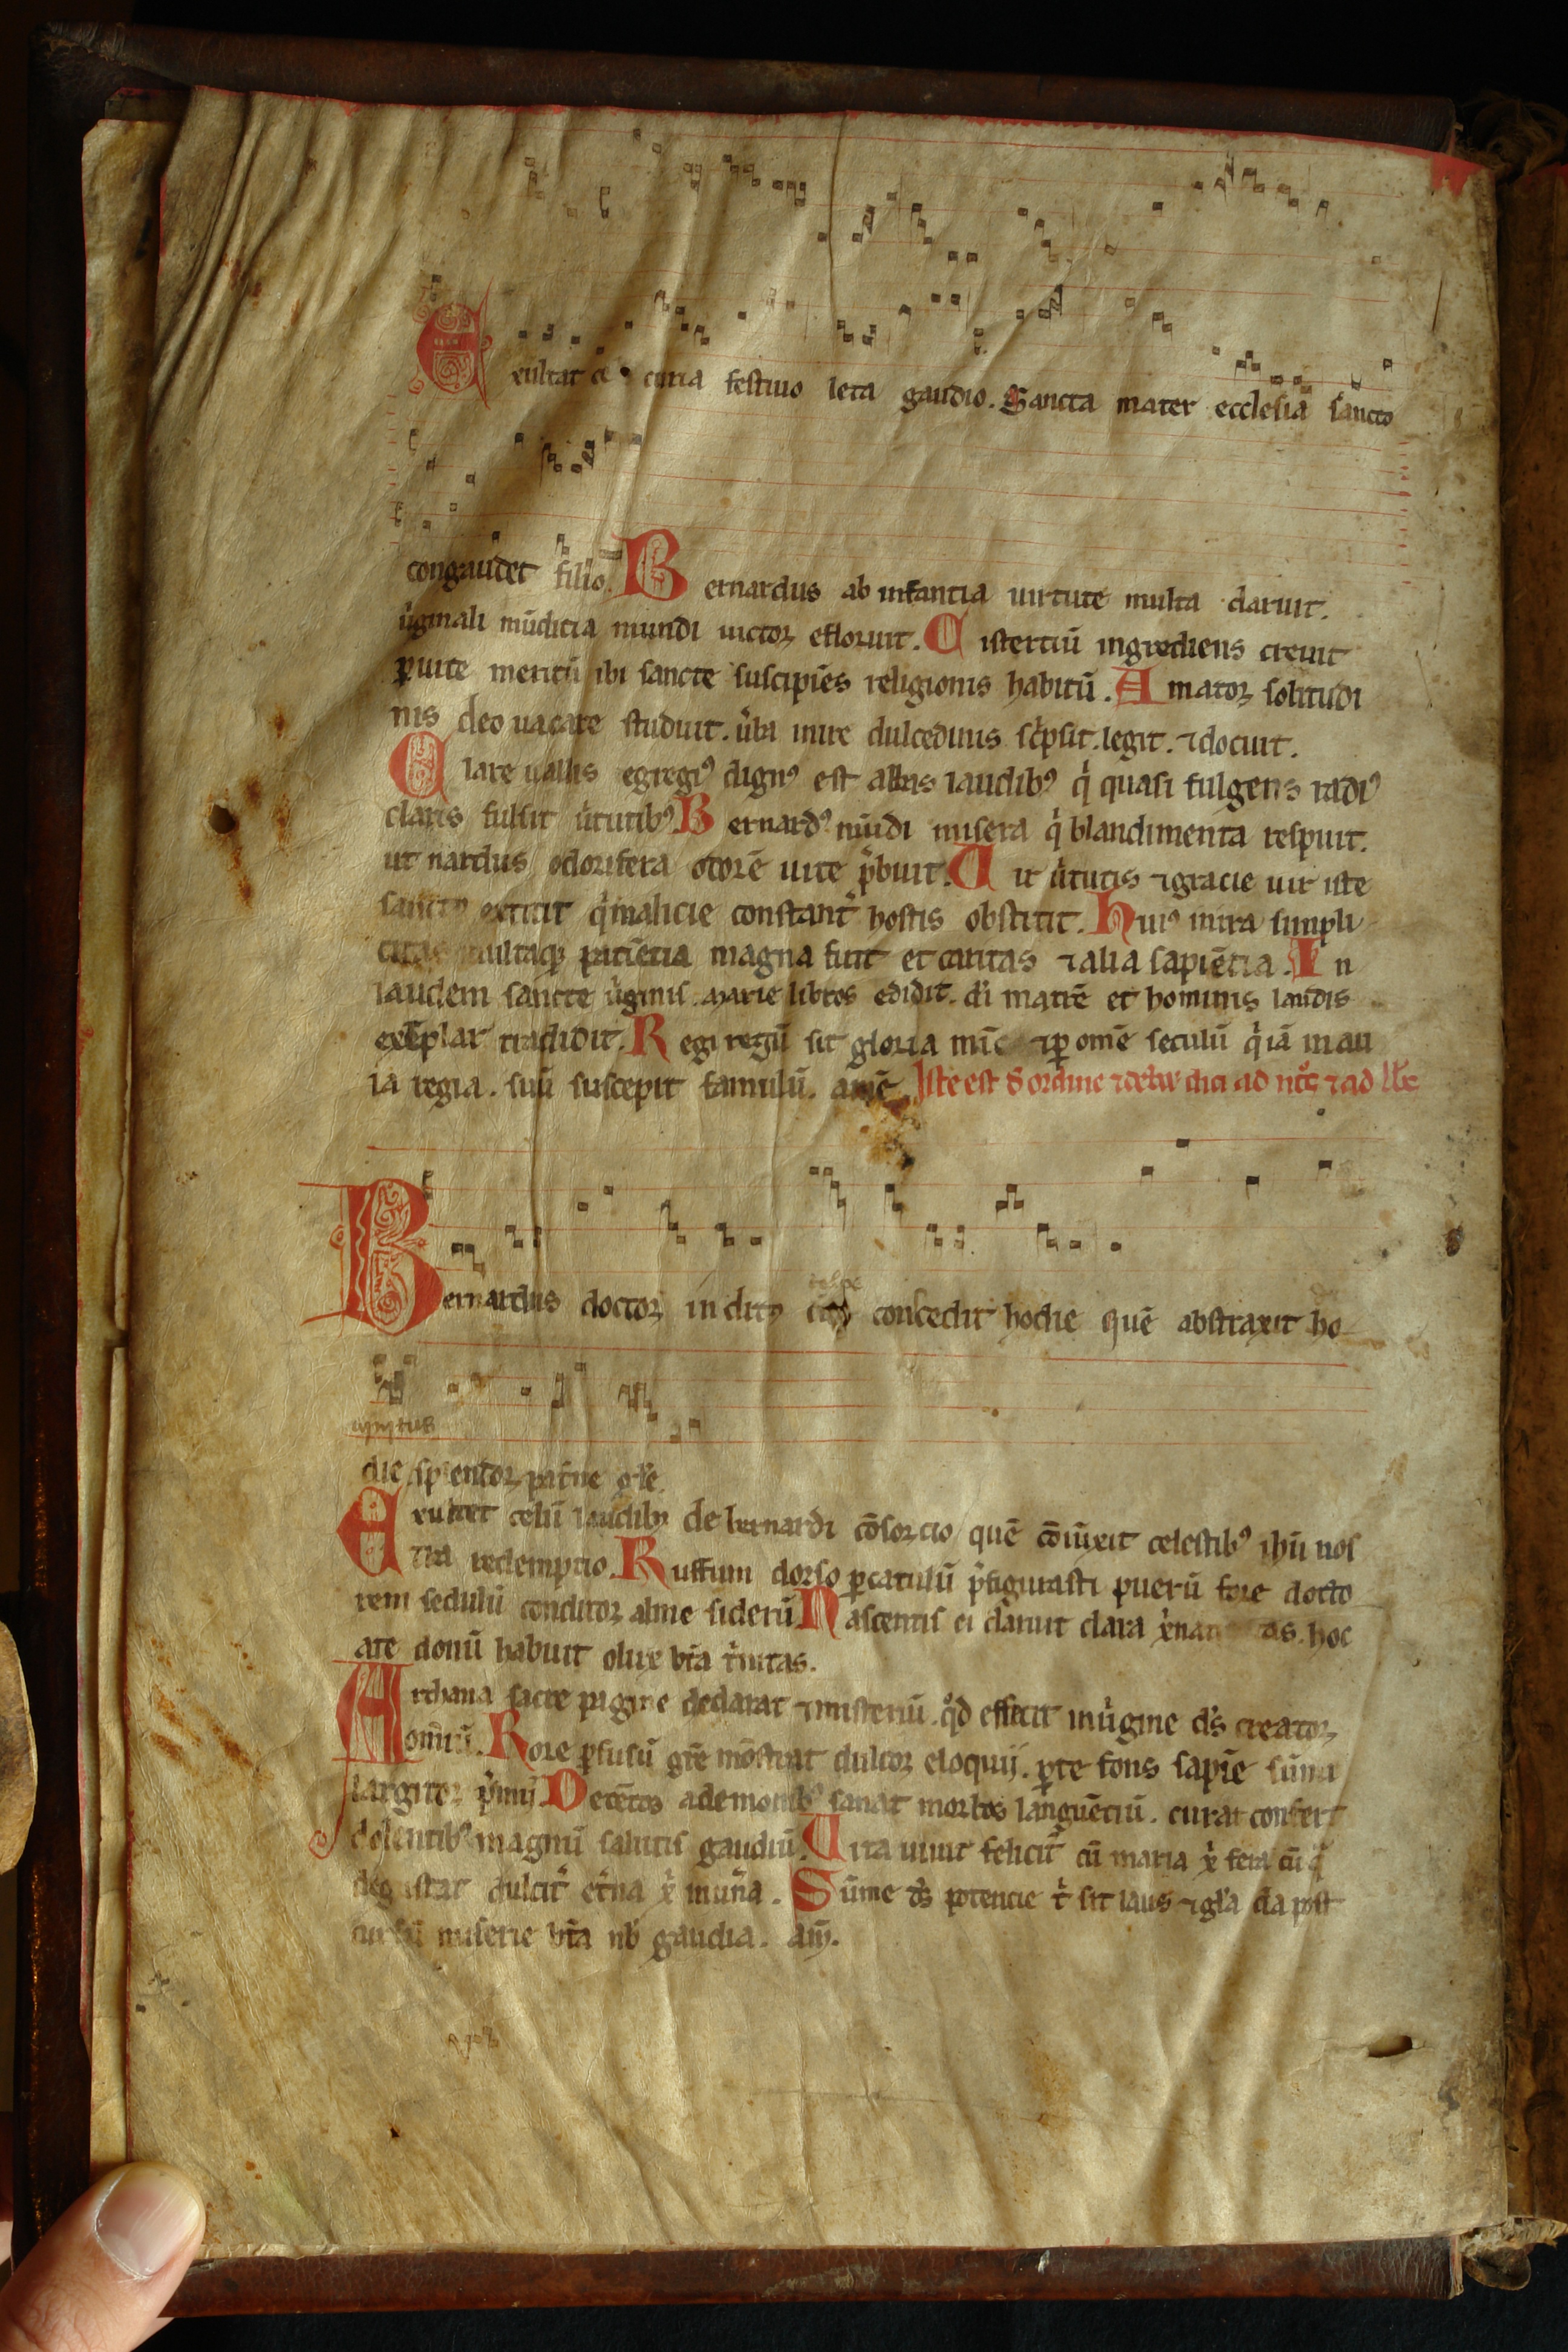 Exultat celi curia festiuo leta gaudio. Sancta mater ecclesia sancto
congaudet filio. Bernardus ab infantia uirtute multa claruit.
u̓ginali mūdicia mundi uictor efloruit. Cistertiū ingrediens creuit
ꝑ uite meritū ibi sancte suscipiēs religionis habitū. Amator solitudi
nis deo uacare studuit. u̓ba mire dulcedinis sc̓psit. legit. ⁊ docuit.
Clare uallis egregiꝰ dignꝰ est abbas laudibꝰ q̓ quasi fulgens radiꝰ
claris fulsit u̓tutibꝰ. Bernardꝰ mūdi misera q̓ blandimenta respuit.
ut nardus odorifera odorē uite p̓buit. Uir u̓tutis ⁊ gracie uir iste
sanctꝰ extitit q̓ malicie constant̓ hostis obstitit. Huiꝰ mira simpli
citas multaqꝫ patiētia magna fuit et caritas ⁊ alia sapiētia. In
laudem sancte u̓ginis marie libros edidit. di̓ matrē et hominis laudis
exēplar tradidit. Regi regū sit gloria ⁊ ꝑ omē seculū q̓ iā in au
la regia. suū suscepit famulū. amē. Iste est d̓ ordine dici ad ⁊ ad
Bernardus doctor inclitꝰ celos conscedit hodie quē abstraxit ho
mintus
die splendor pat̓ne gl̓e.
Exultet celū laudibꝰ de bernardi cōsorcio quē cōiūxit celestibꝰ ihū nos
tra redemptio. Ruffum dorso ꝑ catulū p̓figurasti puerū fore docto
rem sedulū conditor alme siderū. Nascentis ei claruit clara hoc
are donū habuit o lux bt̄a t̓nitas.
Archana sacre pagine declarat ⁊ misteriū. qd̓ effecit in u̓gine ds̄ creator
omīū. Rore ꝑfusū gr̄e mōstrat dulcor eloquij. ꝑ te fons sapīe sūma
largitor p̓mij. Detētos a demonibꝰ sanat morbos languētiū. curat confert
dolentibꝰ magnū salutis gaudiū. Uita uiuit felicit̓ cū maria
degustat dulcit̓ et̓na mun̓a. Sūme ds̄ potencie t̓ sit laus ⁊ gl̓a da post
cursū miserie bt̄a nb̓ gaudia. am̄.